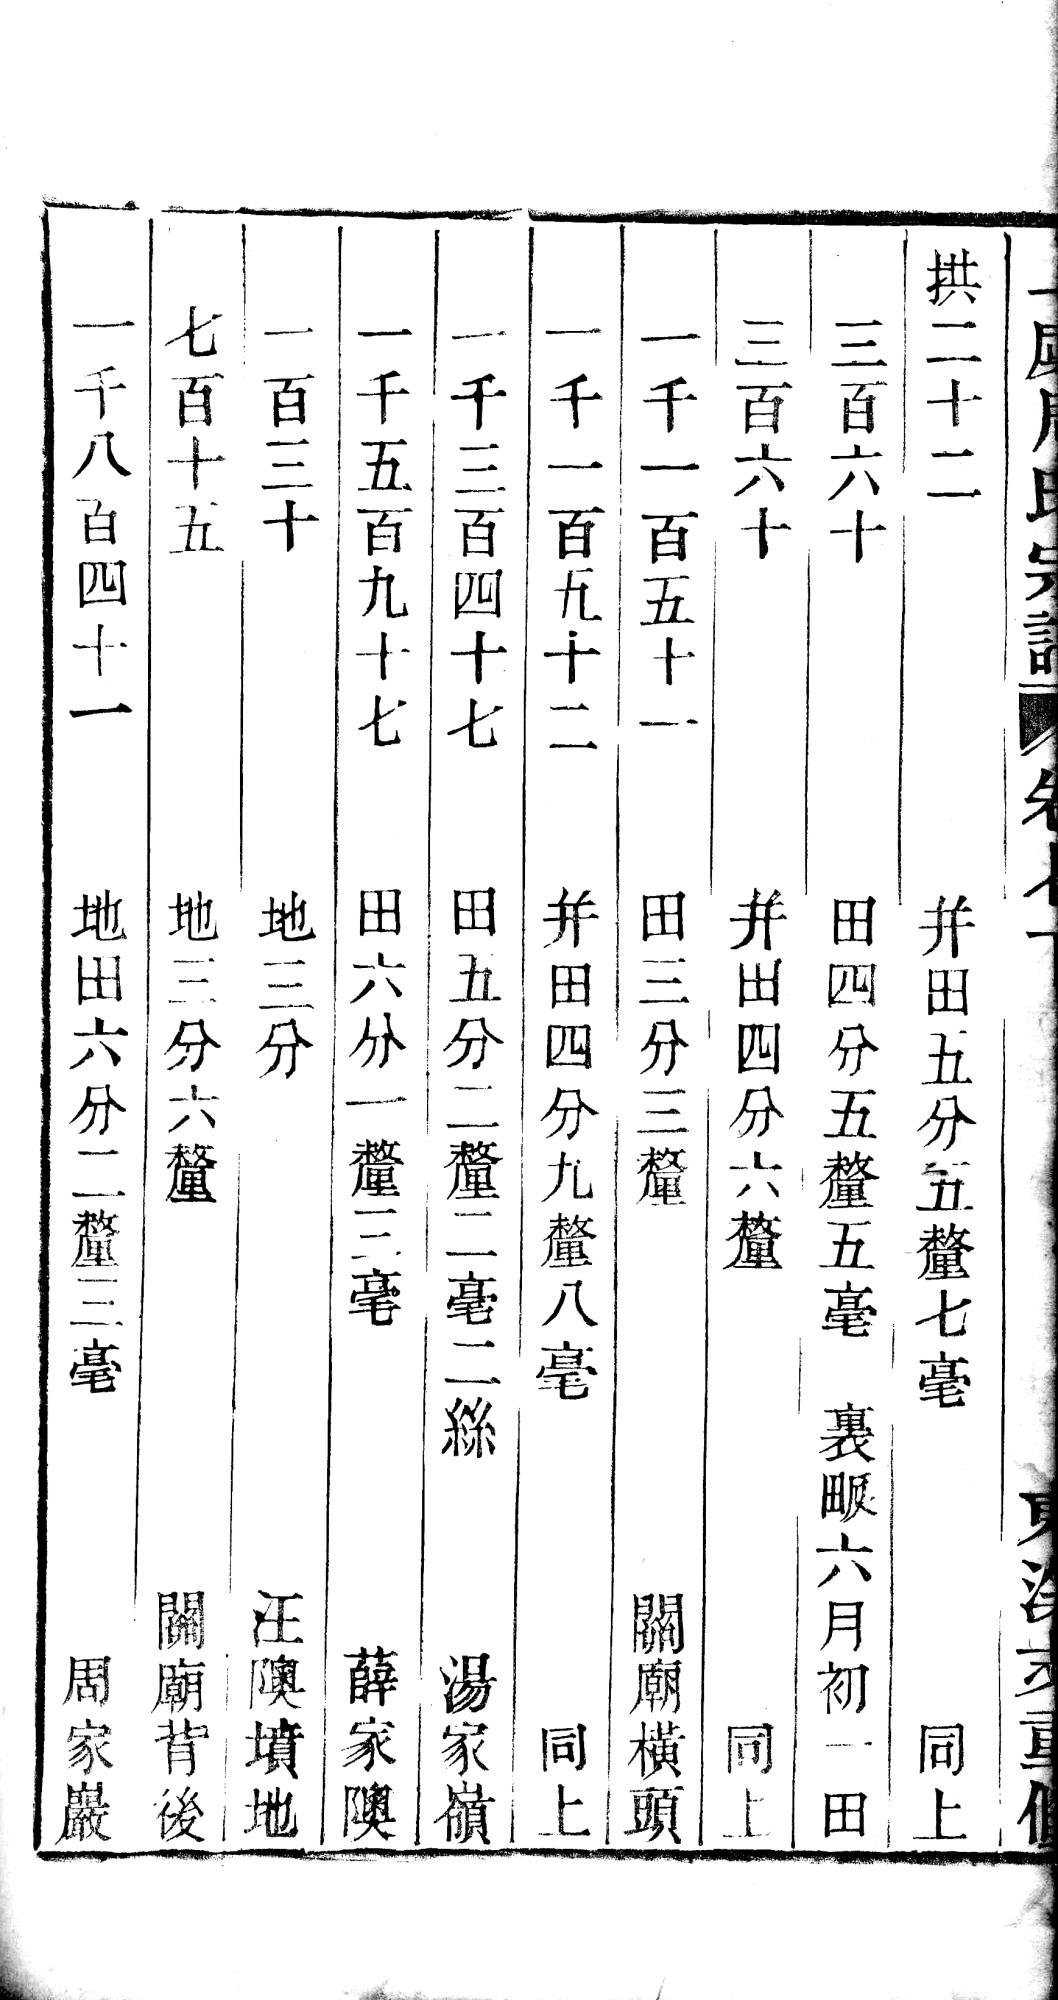 拱二十二 并田五分五釐七毫 同上
三百六十 田四分五釐五毫 裏畈六月初一田
三百六十 并田四分六釐 同上
一千一百五十一 田三分三釐 關廟橫頭
一千一百九十二 并田四分九釐八毫 同上
一千三百四十七 田五分二釐二毫二絲 湯家嶺
一千五百九十七 田六分一釐三毫 薛家隩
一百三十 地三分 汪隩墳地
七百十五 地三分六釐 關廟背後
一千八百四十一 地田六分二釐三毫 周家巖